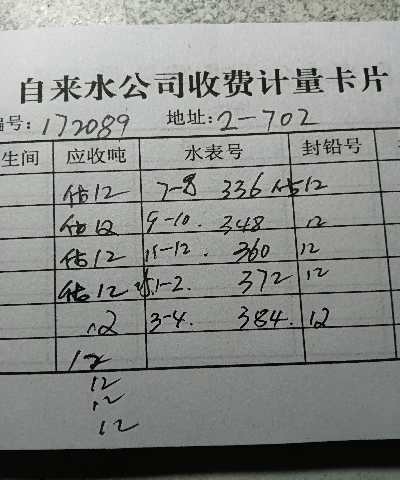 自来水公司收费计量卡片
编号: 172089 地址: 2-702
生间 应收吨 水表号 封铅号
估12 7-8 336 估12
估12 9-10. 348 12
估12 11-12. 360 12
估12 1-2. 372 12
12 3-4. 384. 12
12
12
12
12